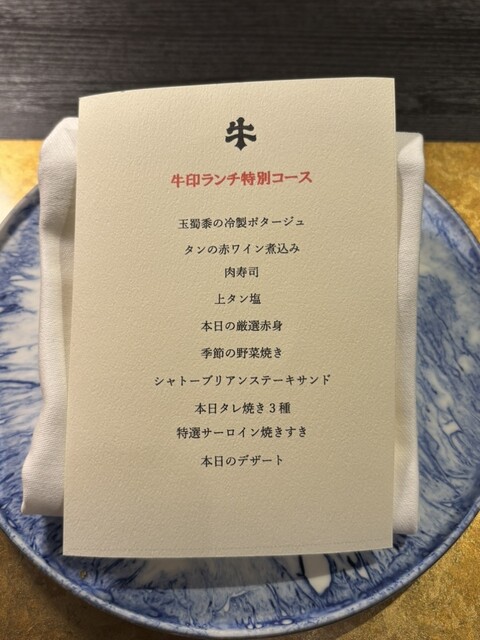 牛
牛印ランチ特別コース
玉蜀黍の冷製ポタージュ
タンの赤ワイン煮込み
肉寿司
上タン塩
本日の厳選赤身
季節の野菜焼き
シャトーブリアンステーキサンド
本日タレ焼き3種
特選サーロイン焼きすき
本日のデザート